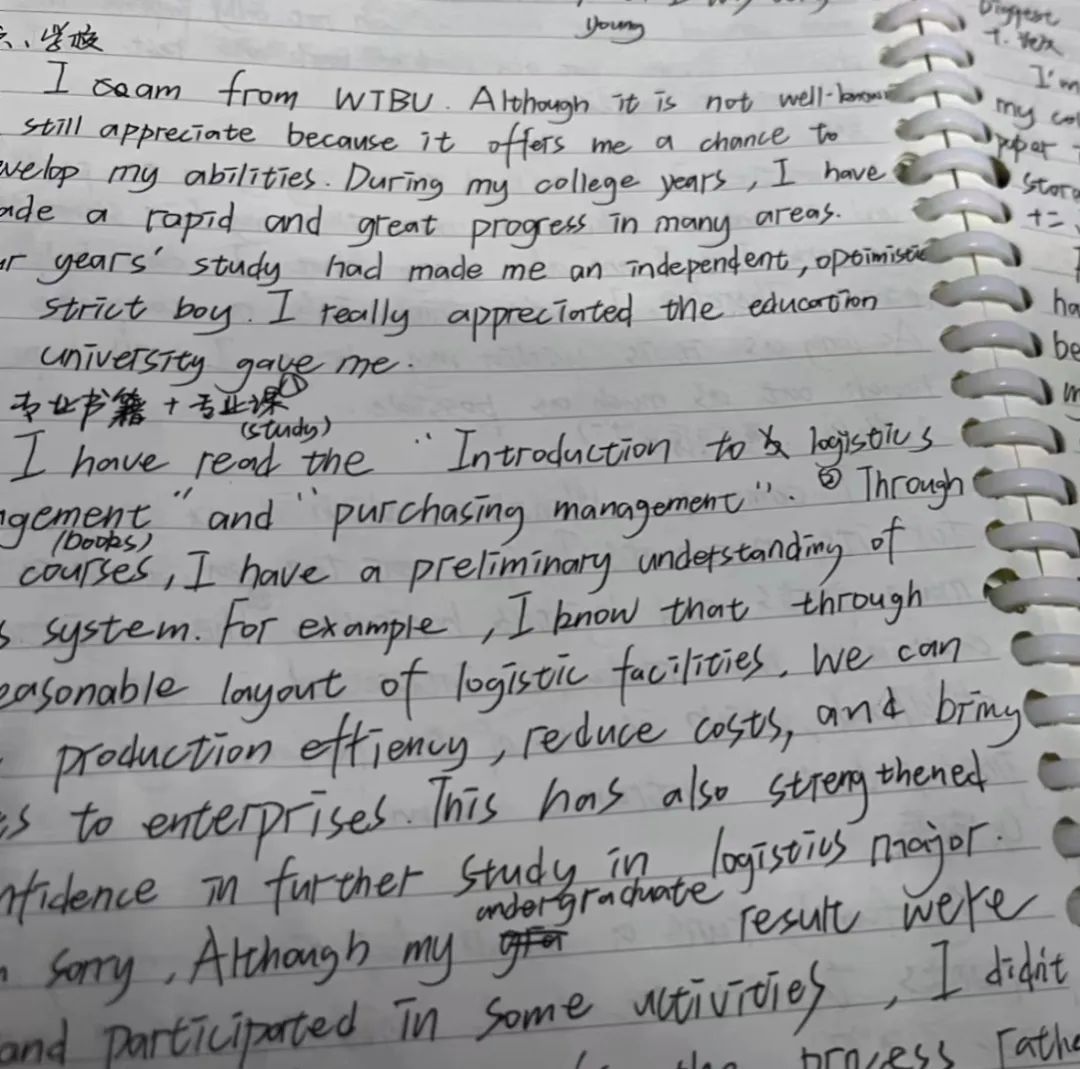 young
六、学校
I am from WTBU. Although it is not well-known
still appreciate because it offers me a chance to
velop my abilities. During my college years, I have
ade a rapid and great progress in many areas.
r years' study had made me an independent, optimistic
strict boy. I really appreciated the education
university gave me.
专业书籍 + 专业课 ①
(study)
I have read the "Introduction to logistics
gement" and "purchasing management". ② Through
(books)
courses, I have a preliminary understanding of
s system. For example, I know that through
easonable layout of logistic facilities, we can
production effiency, reduce costs, and bring
s to enterprises. This has also strengthened
nfidence in further study in logistics major.
undergraduate
sorry, Although my result were
and participated in some activities, I didn't
process rathe
Biggest
I'm
my col
paper
Stora
+=
ha
be